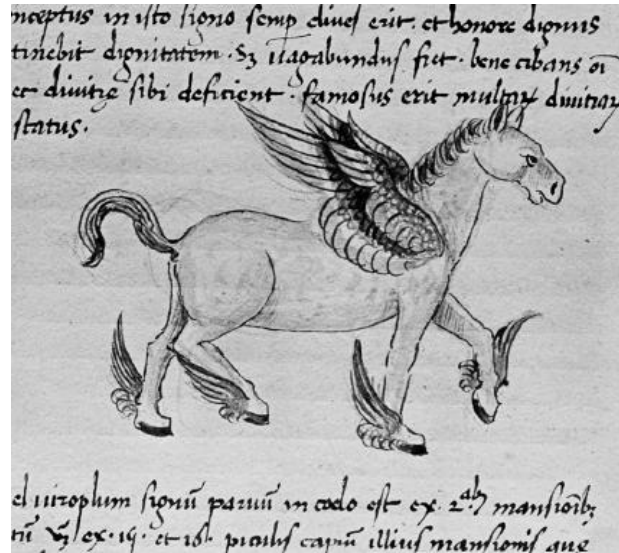 nceptus in isto signo semp dives erit. et honore dignus
tinebit dignitatem. sz vagabundus fiet. bene cibans
et divitie sibi deficient. famosus erit multar divitiar
status.
signū parvū in coelo est ex. mansioīb;
ex. iij. et 18. piculis capiū illius mansionis que